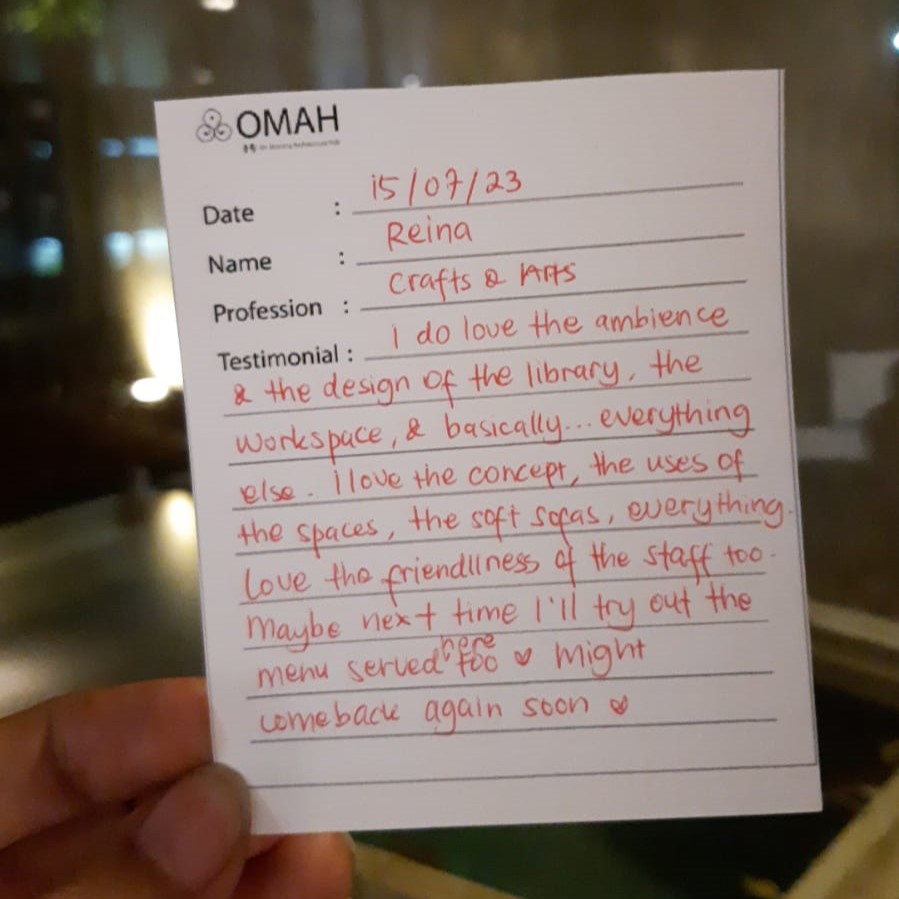 OMAH
Date : 15/07/23
Name : Reina
Profession : Crafts & Arts
Testimonial : I do love the ambience
& the design of the library, the
workspace, & basically... everything
else. I love the concept, the uses of
the spaces, the soft sofas, everything.
Love the friendliness of the staff too.
Maybe next time I'll try out the
menu served here too ♥ Might
comeback again soon ♥